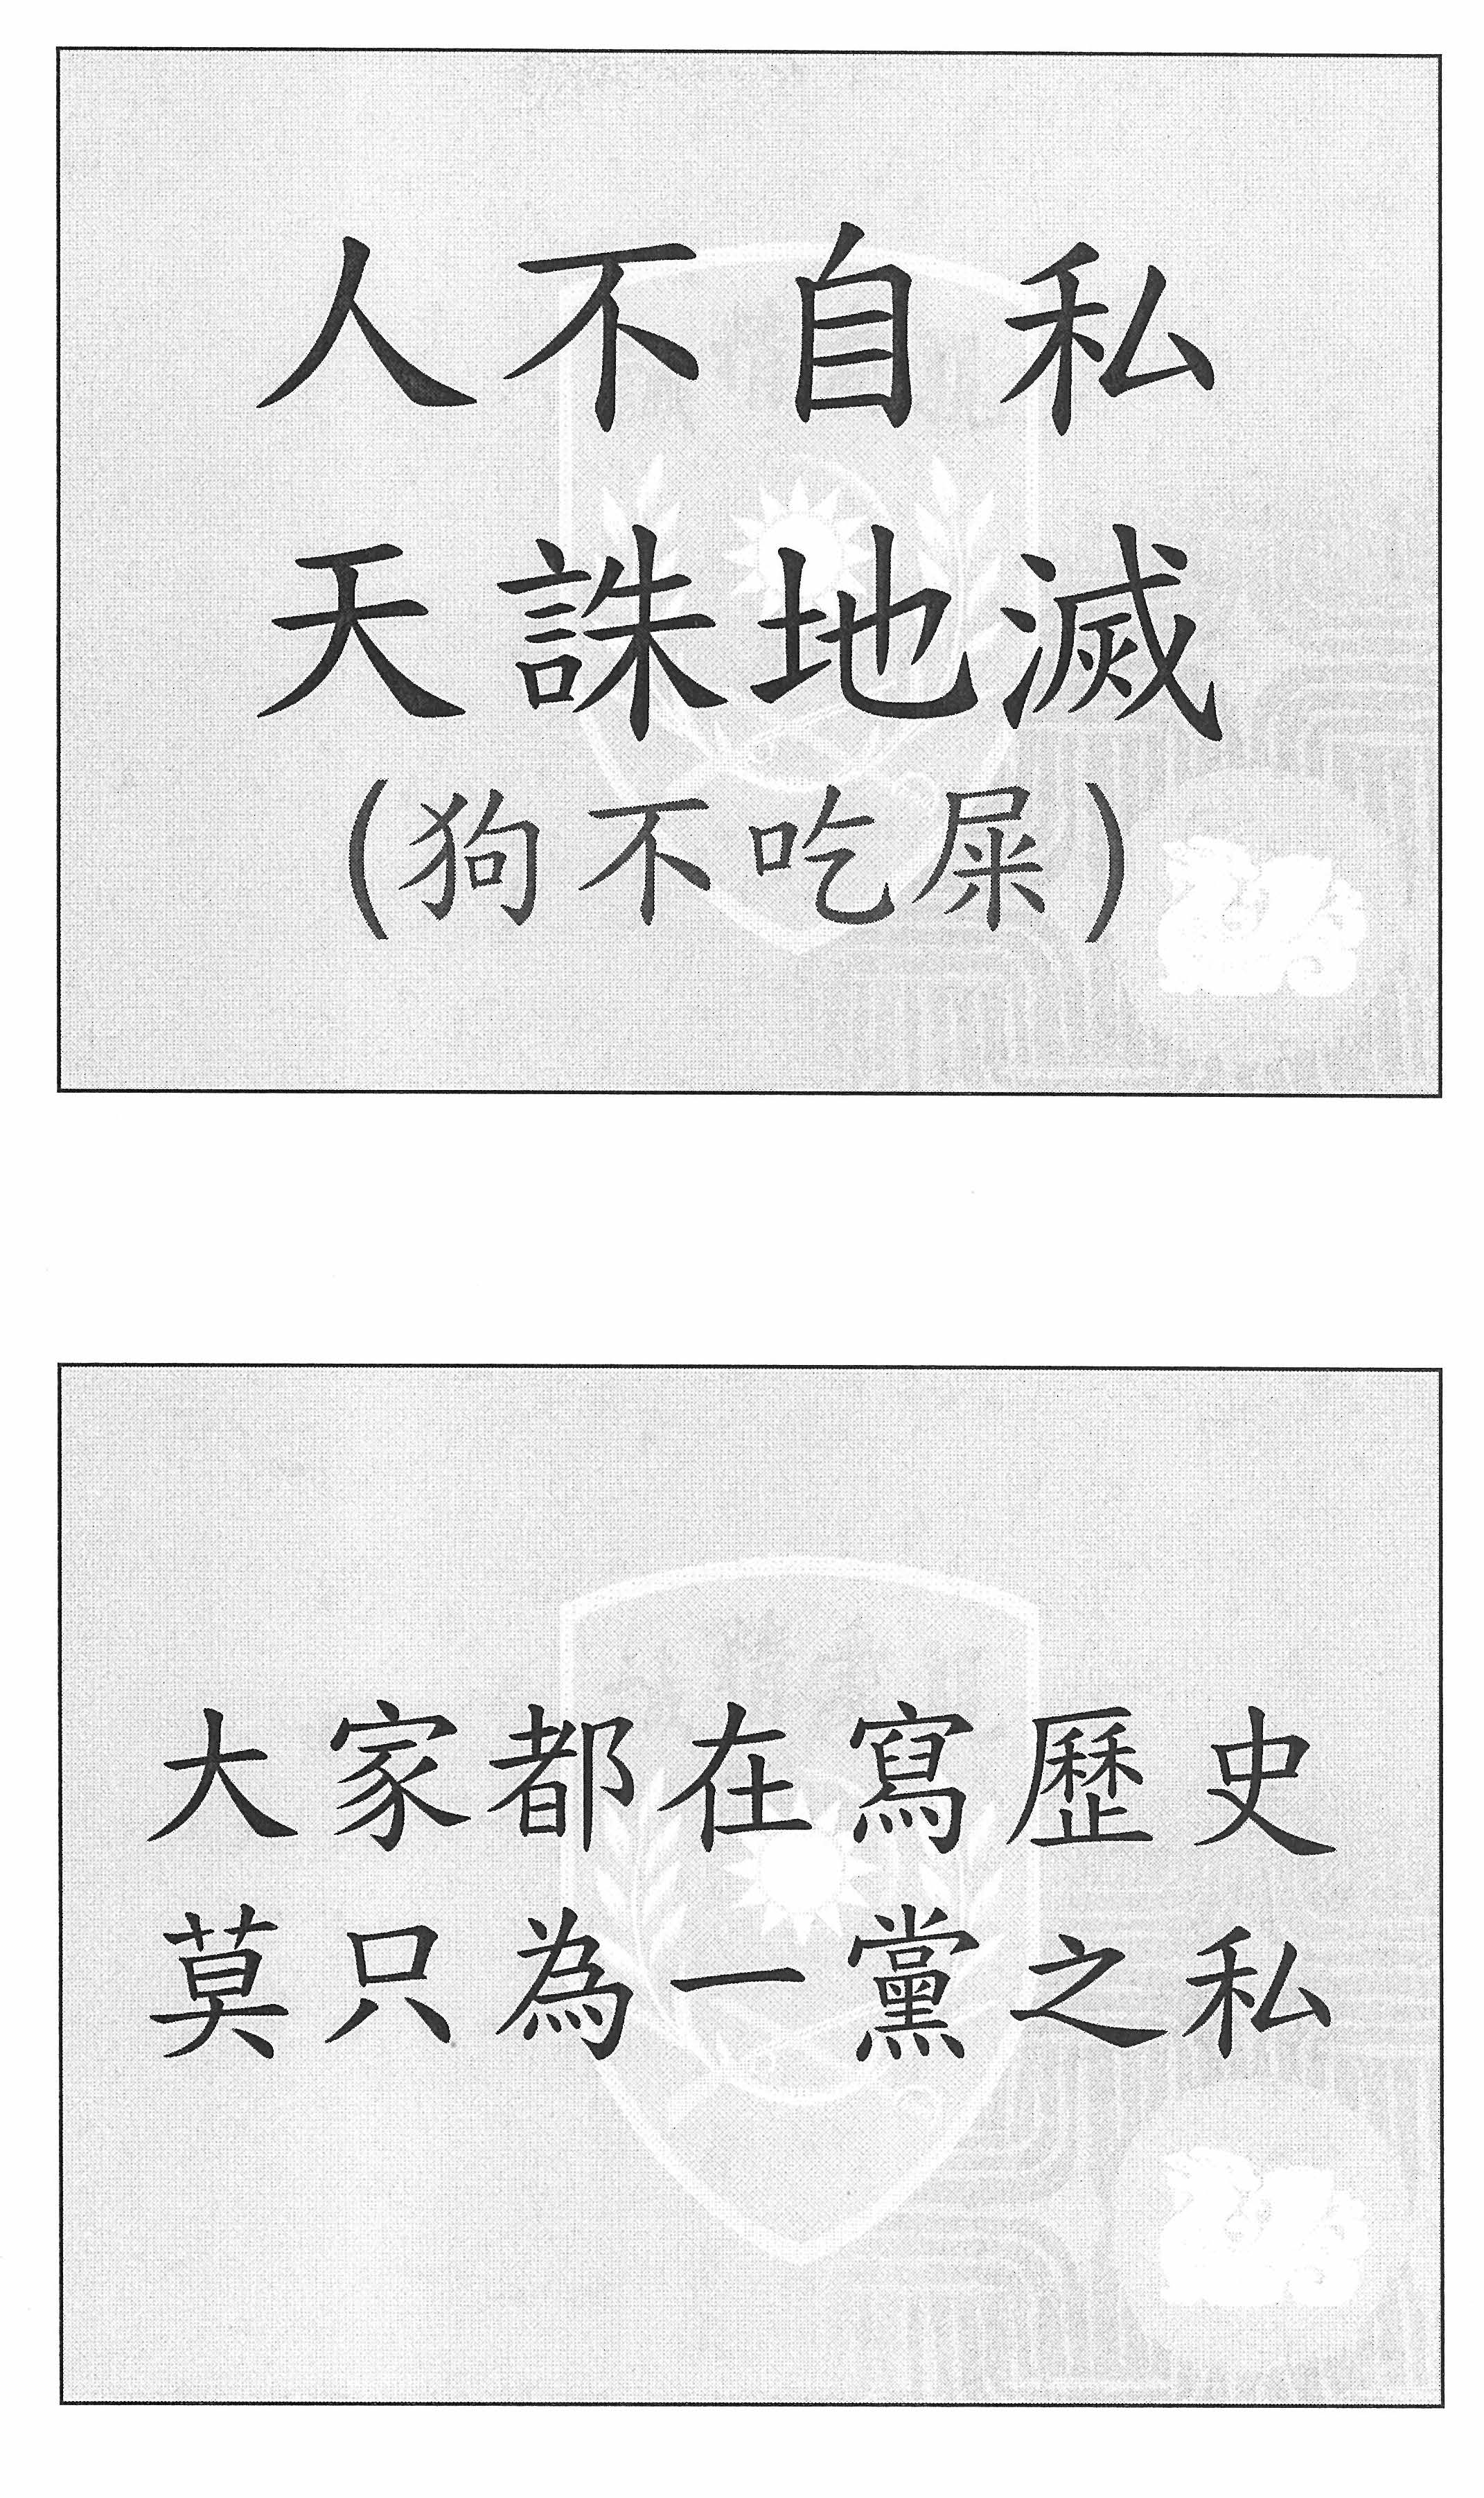 人不自私
天誅地滅
(狗不吃屎)
大家都在寫歷史
莫只為一黨之私